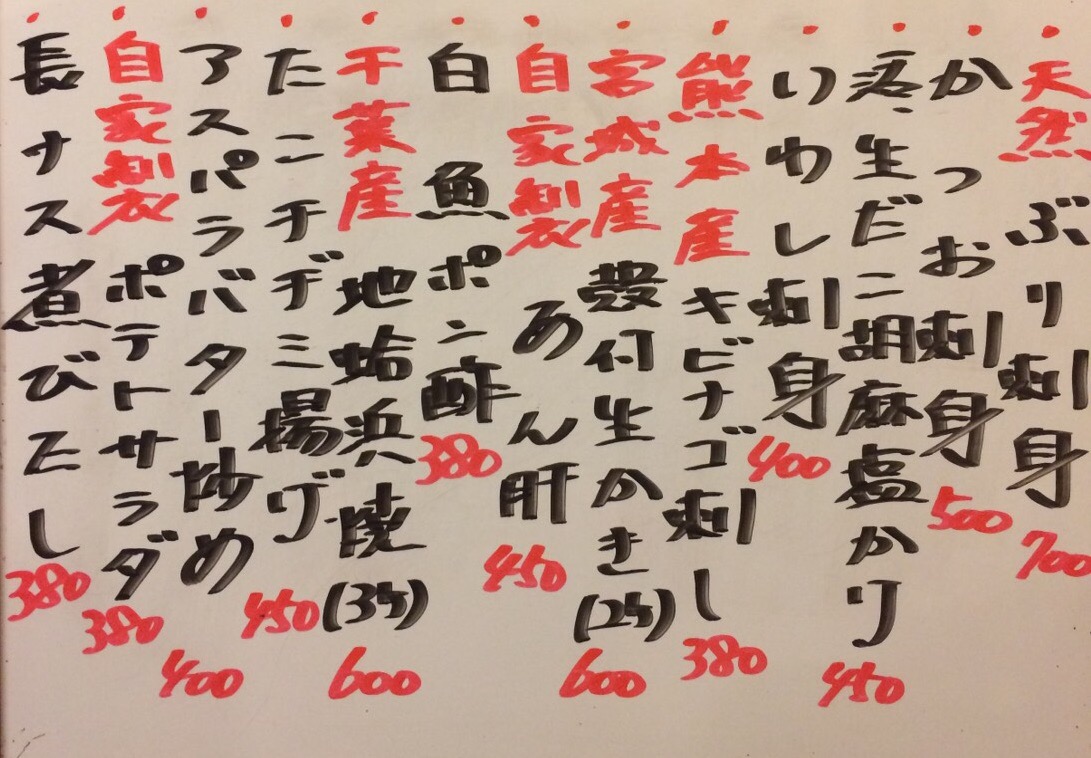 天然ぶり刺身 700
かつお刺身 500
活生だこ胡麻塩かり 450
いわし刺身 400
熊本産キビナゴ刺し 380
宮城産殻付生かき(2ヶ) 600
自家製あん肝 450
白魚ポン酢 380
千葉産地蛤浜焼(3ヶ) 600
たこチヂミ揚げ 450
アスパラバター炒め 400
自家製ポテトサラダ 380
長ナス煮びたし 380